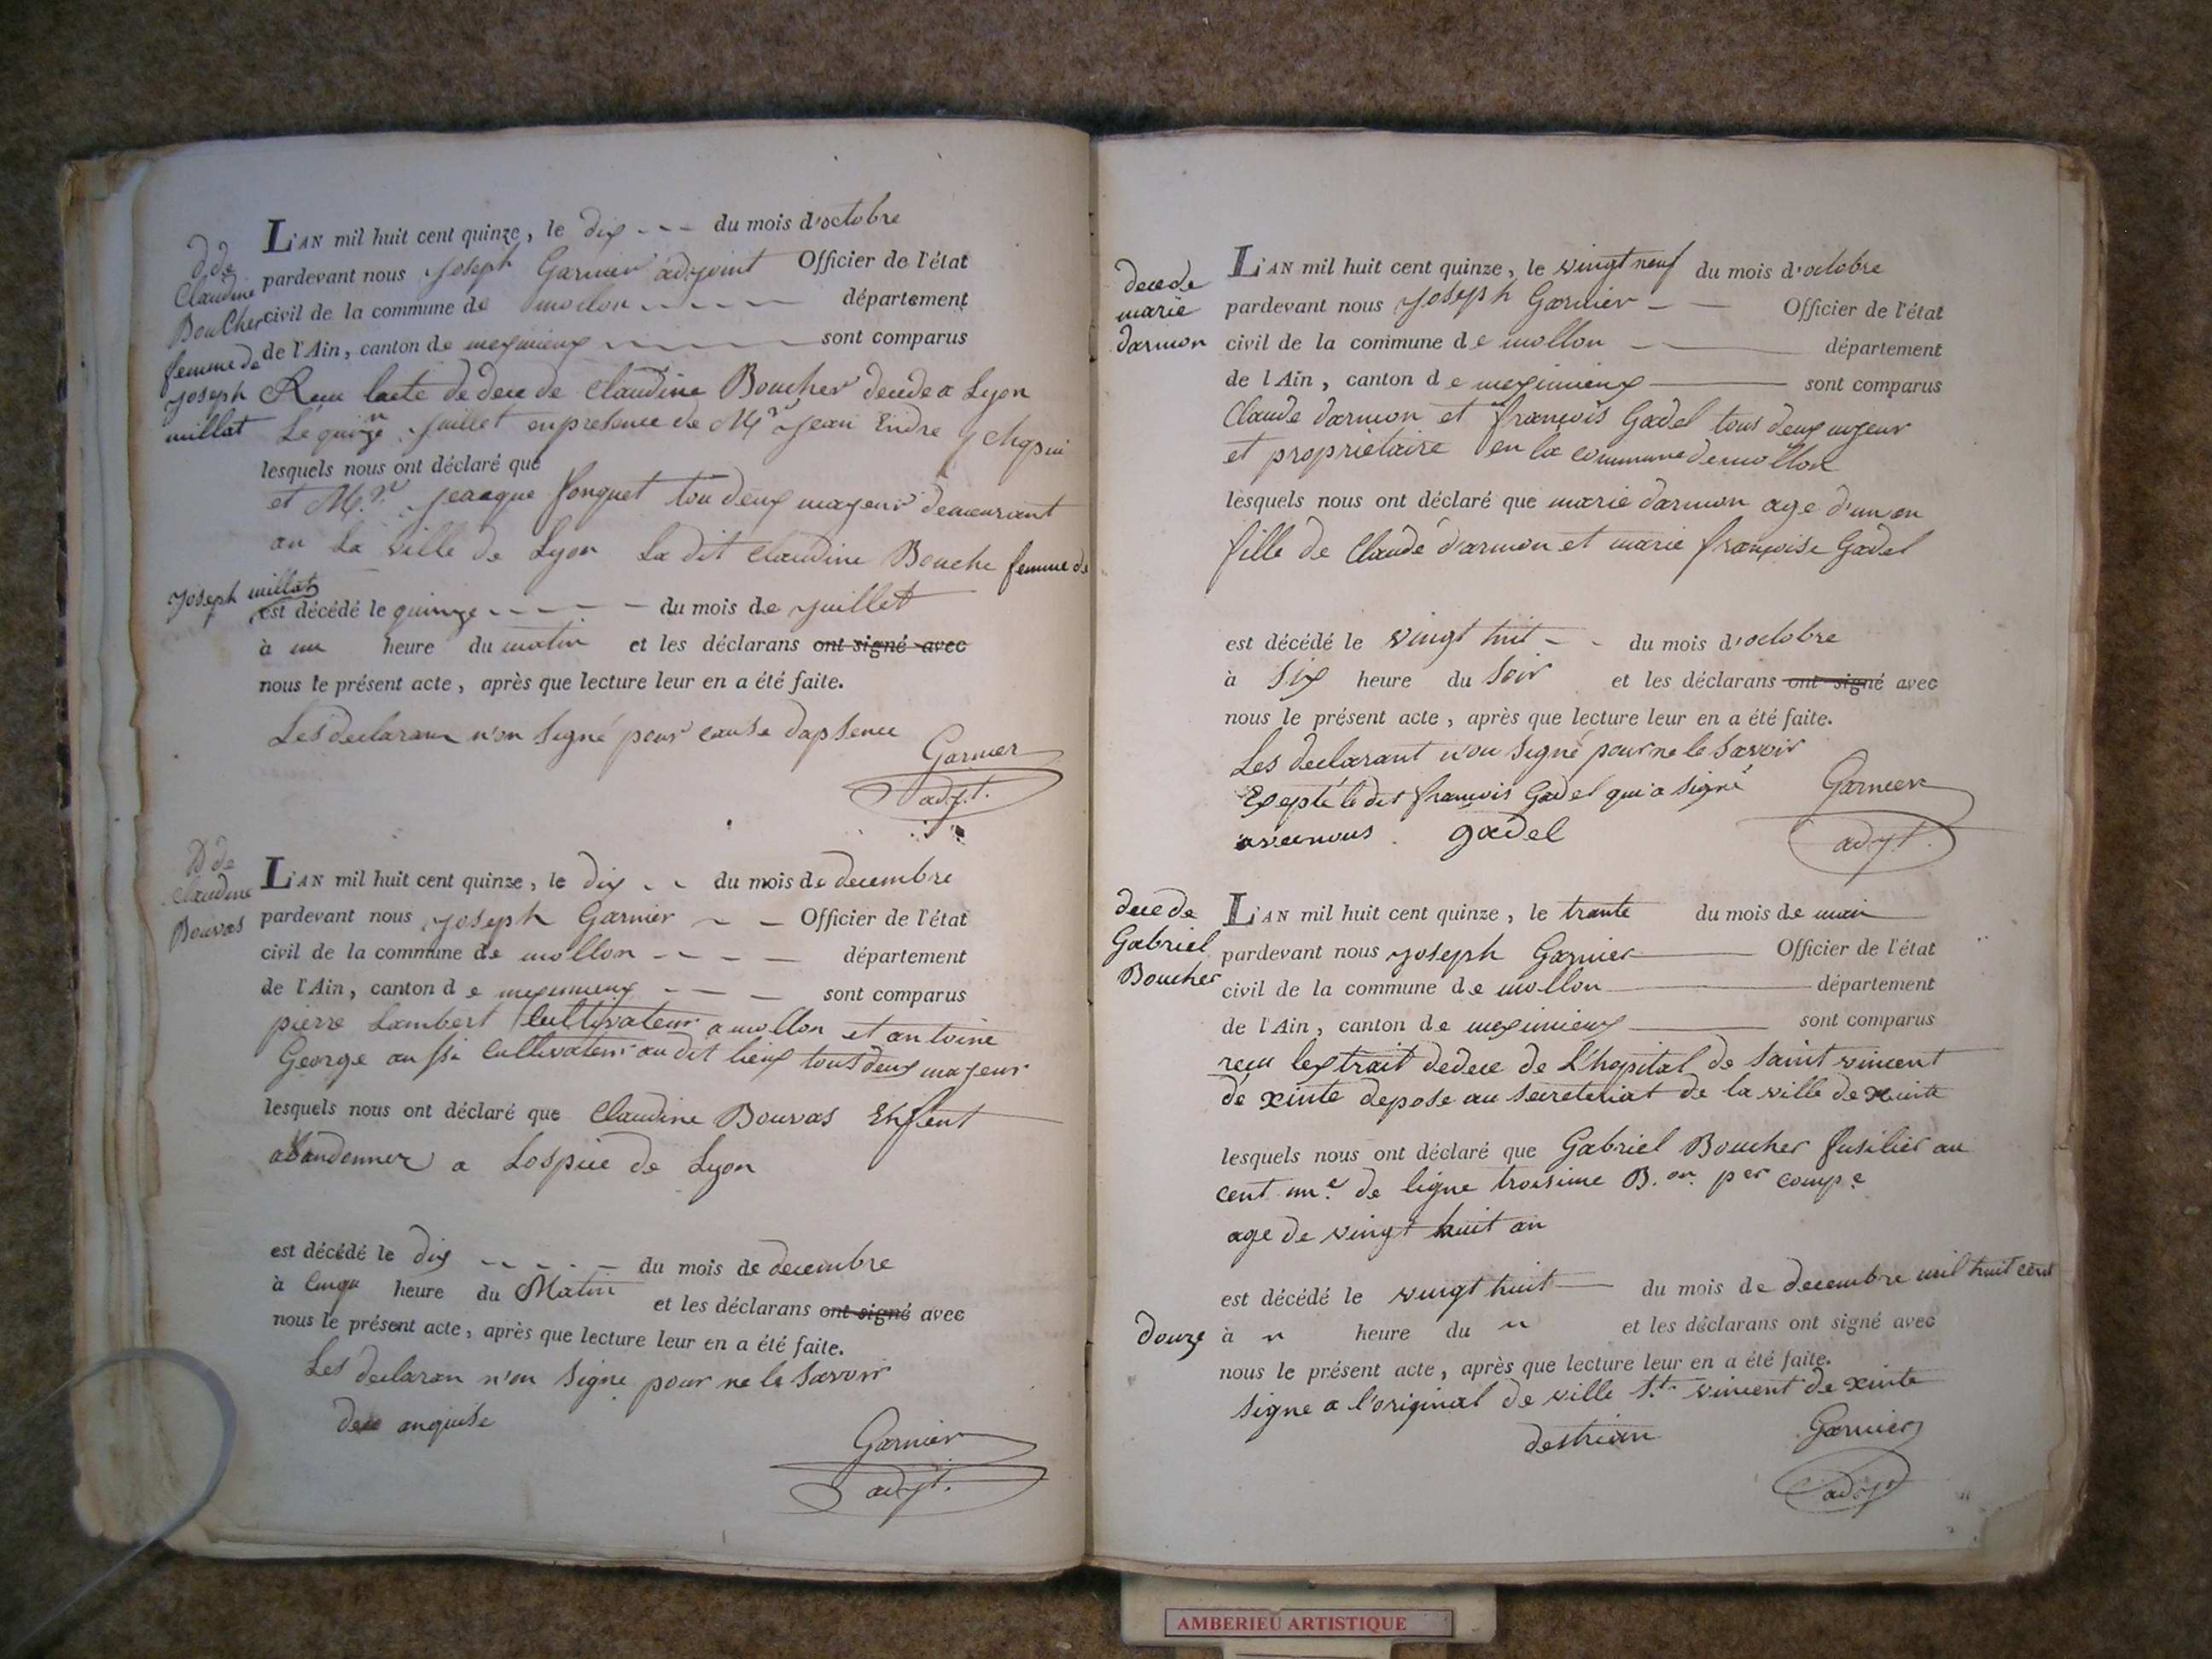 d de
Claudine
Boucher
femme de
joseph
millat
L'AN mil huit cent quinze, le dix --- du mois d'octobre
pardevant nous joseph Garnier adjoint Officier de l'état
civil de la commune de mollon ---- département
de l'Ain, canton de meximieux ---- sont comparus
Reçu lacte de dece de Claudine Boucher decede a Lyon
Le quinze juillet en presence de Mr jean Endre
lesquels nous ont déclaré que
et Mr. jeacque fonquet tou deux majeur demeurant
an La ville de Lyon La dit Claudine Bouche femme de
joseph millat
est décédé le quinze ---- du mois de juillet
à un heure du matin et les déclarans ont signé avec
nous le présent acte, après que lecture leur en a été faite.
Les declaran n'on signé pour cause dapsence
Garnier
adjt.
D de
Claudine
Bouvas
L'AN mil huit cent quinze, le dix -- du mois de decembre
pardevant nous joseph Garnier -- Officier de l'état
civil de la commune de mollon ---- département
de l'Ain, canton de meximieux --- sont comparus
pierre Lambert Cultivateur a mollon et antoine
George aussi Cultivateur au dit lieux tous deux majeur
lesquels nous ont déclaré que Claudine Bouvas Enfent
abandonner a Lospice de Lyon
est décédé le dix ----- du mois de decembre
à Cinqu heure du Matin et les déclarans ont signé avec
nous le présent acte, après que lecture leur en a été faite.
Les declaran n'on signe pour ne le savoir
dece
Garnier
adjt.
decede
marie
darmon
L'AN mil huit cent quinze, le vingt neuf du mois d'octobre
pardevant nous joseph Garnier -- Officier de l'état
civil de la commune de mollon -- département
de l'Ain, canton de meximieux -- sont comparus
Claude darmon et françois Gadel tous deux majeur
et propriétaire en la commune de mollon
lesquels nous ont déclaré que marie darmon age d'un an
fille de Claude darmon et marie françoise Gadel
est décédé le vingt huit -- du mois d'octobre
à Six heure du Soir et les déclarans ont signé avec
nous le présent acte, après que lecture leur en a été faite.
Les declarant n'on signé pour ne le savoir
Exepté le dit françois Gadel qui a signé
avec nous. gadel
Garnier
adjt.
dece de
Gabriel
Boucher
L'AN mil huit cent quinze, le trante du mois de mai
pardevant nous joseph Garnier -- Officier de l'état
civil de la commune de mollon -- département
de l'Ain, canton de meximieux -- sont comparus
reçu lextrait dedece de L'hopital de saint vincent
de xinte depose au secreteriat de la ville de xinte
lesquels nous ont déclaré que Gabriel Boucher fusilier au
cent un.e de ligne troisime B.on per comp.e
age de vingt huit an
est décédé le vingt huit -- du mois de decembre mil huit cent
douze à " heure du " et les déclarans ont signé avec
nous le présent acte, après que lecture leur en a été faite.
signe a l'original de ville St. vincent de xinte
Garnier
adjt
AMBERIEU ARTISTIQUE